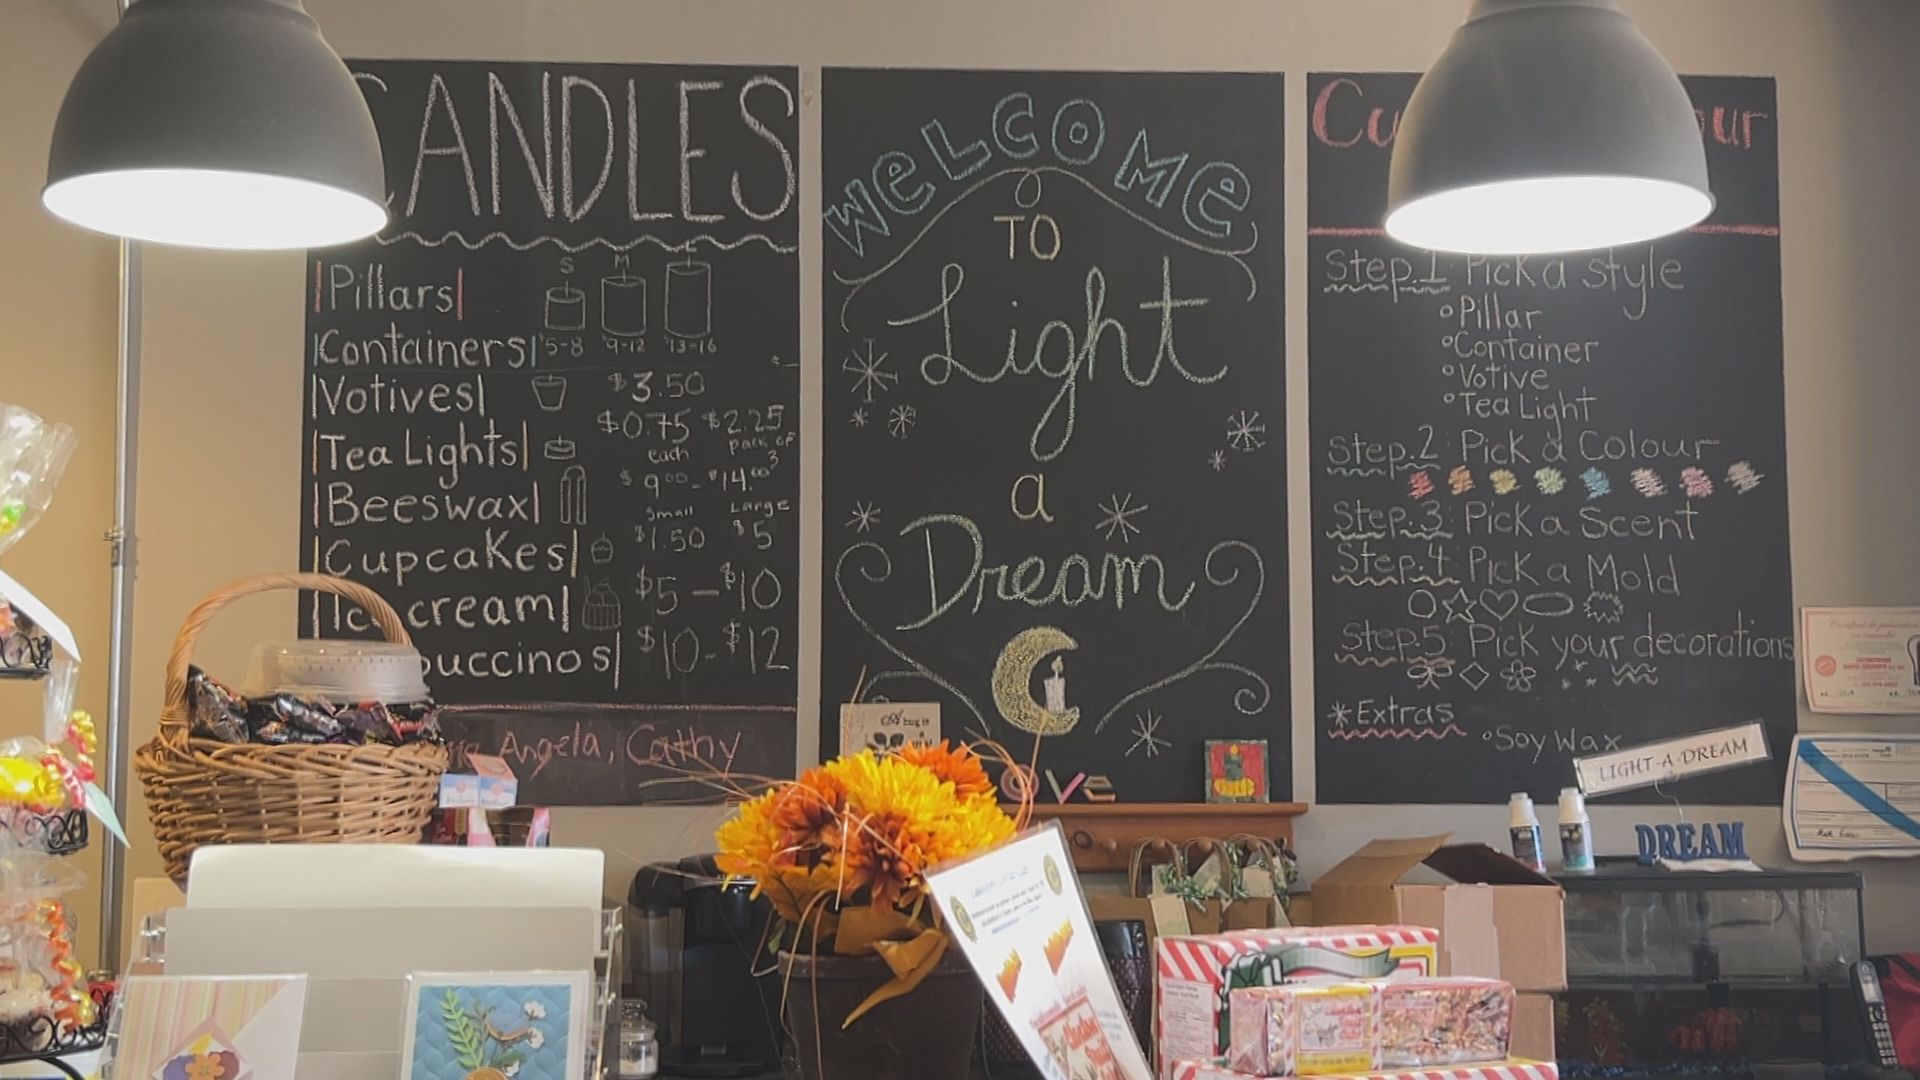 CANDLES
S M L
Pillars
Containers $5-8 $9-12 $13-16
Votives $3.50
Tea Lights $0.75 each $2.25 pack of 3
Beeswax $9.00 - $14.00
small Large
Cupcakes $1.50 $5
Ice cream $5 - $10
$10 - $12
Angela, Cathy
WELCOME
TO
Light
a
Dream
A hug is
Step.1 Pick a style
Pillar
Container
Votive
Tea Light
Step.2 Pick a Colour
Step.3 Pick a Scent
Step.4 Pick a Mold
Step.5 Pick your decorations
*Extras
Soy Wax
LIGHT-A-DREAM
DREAM